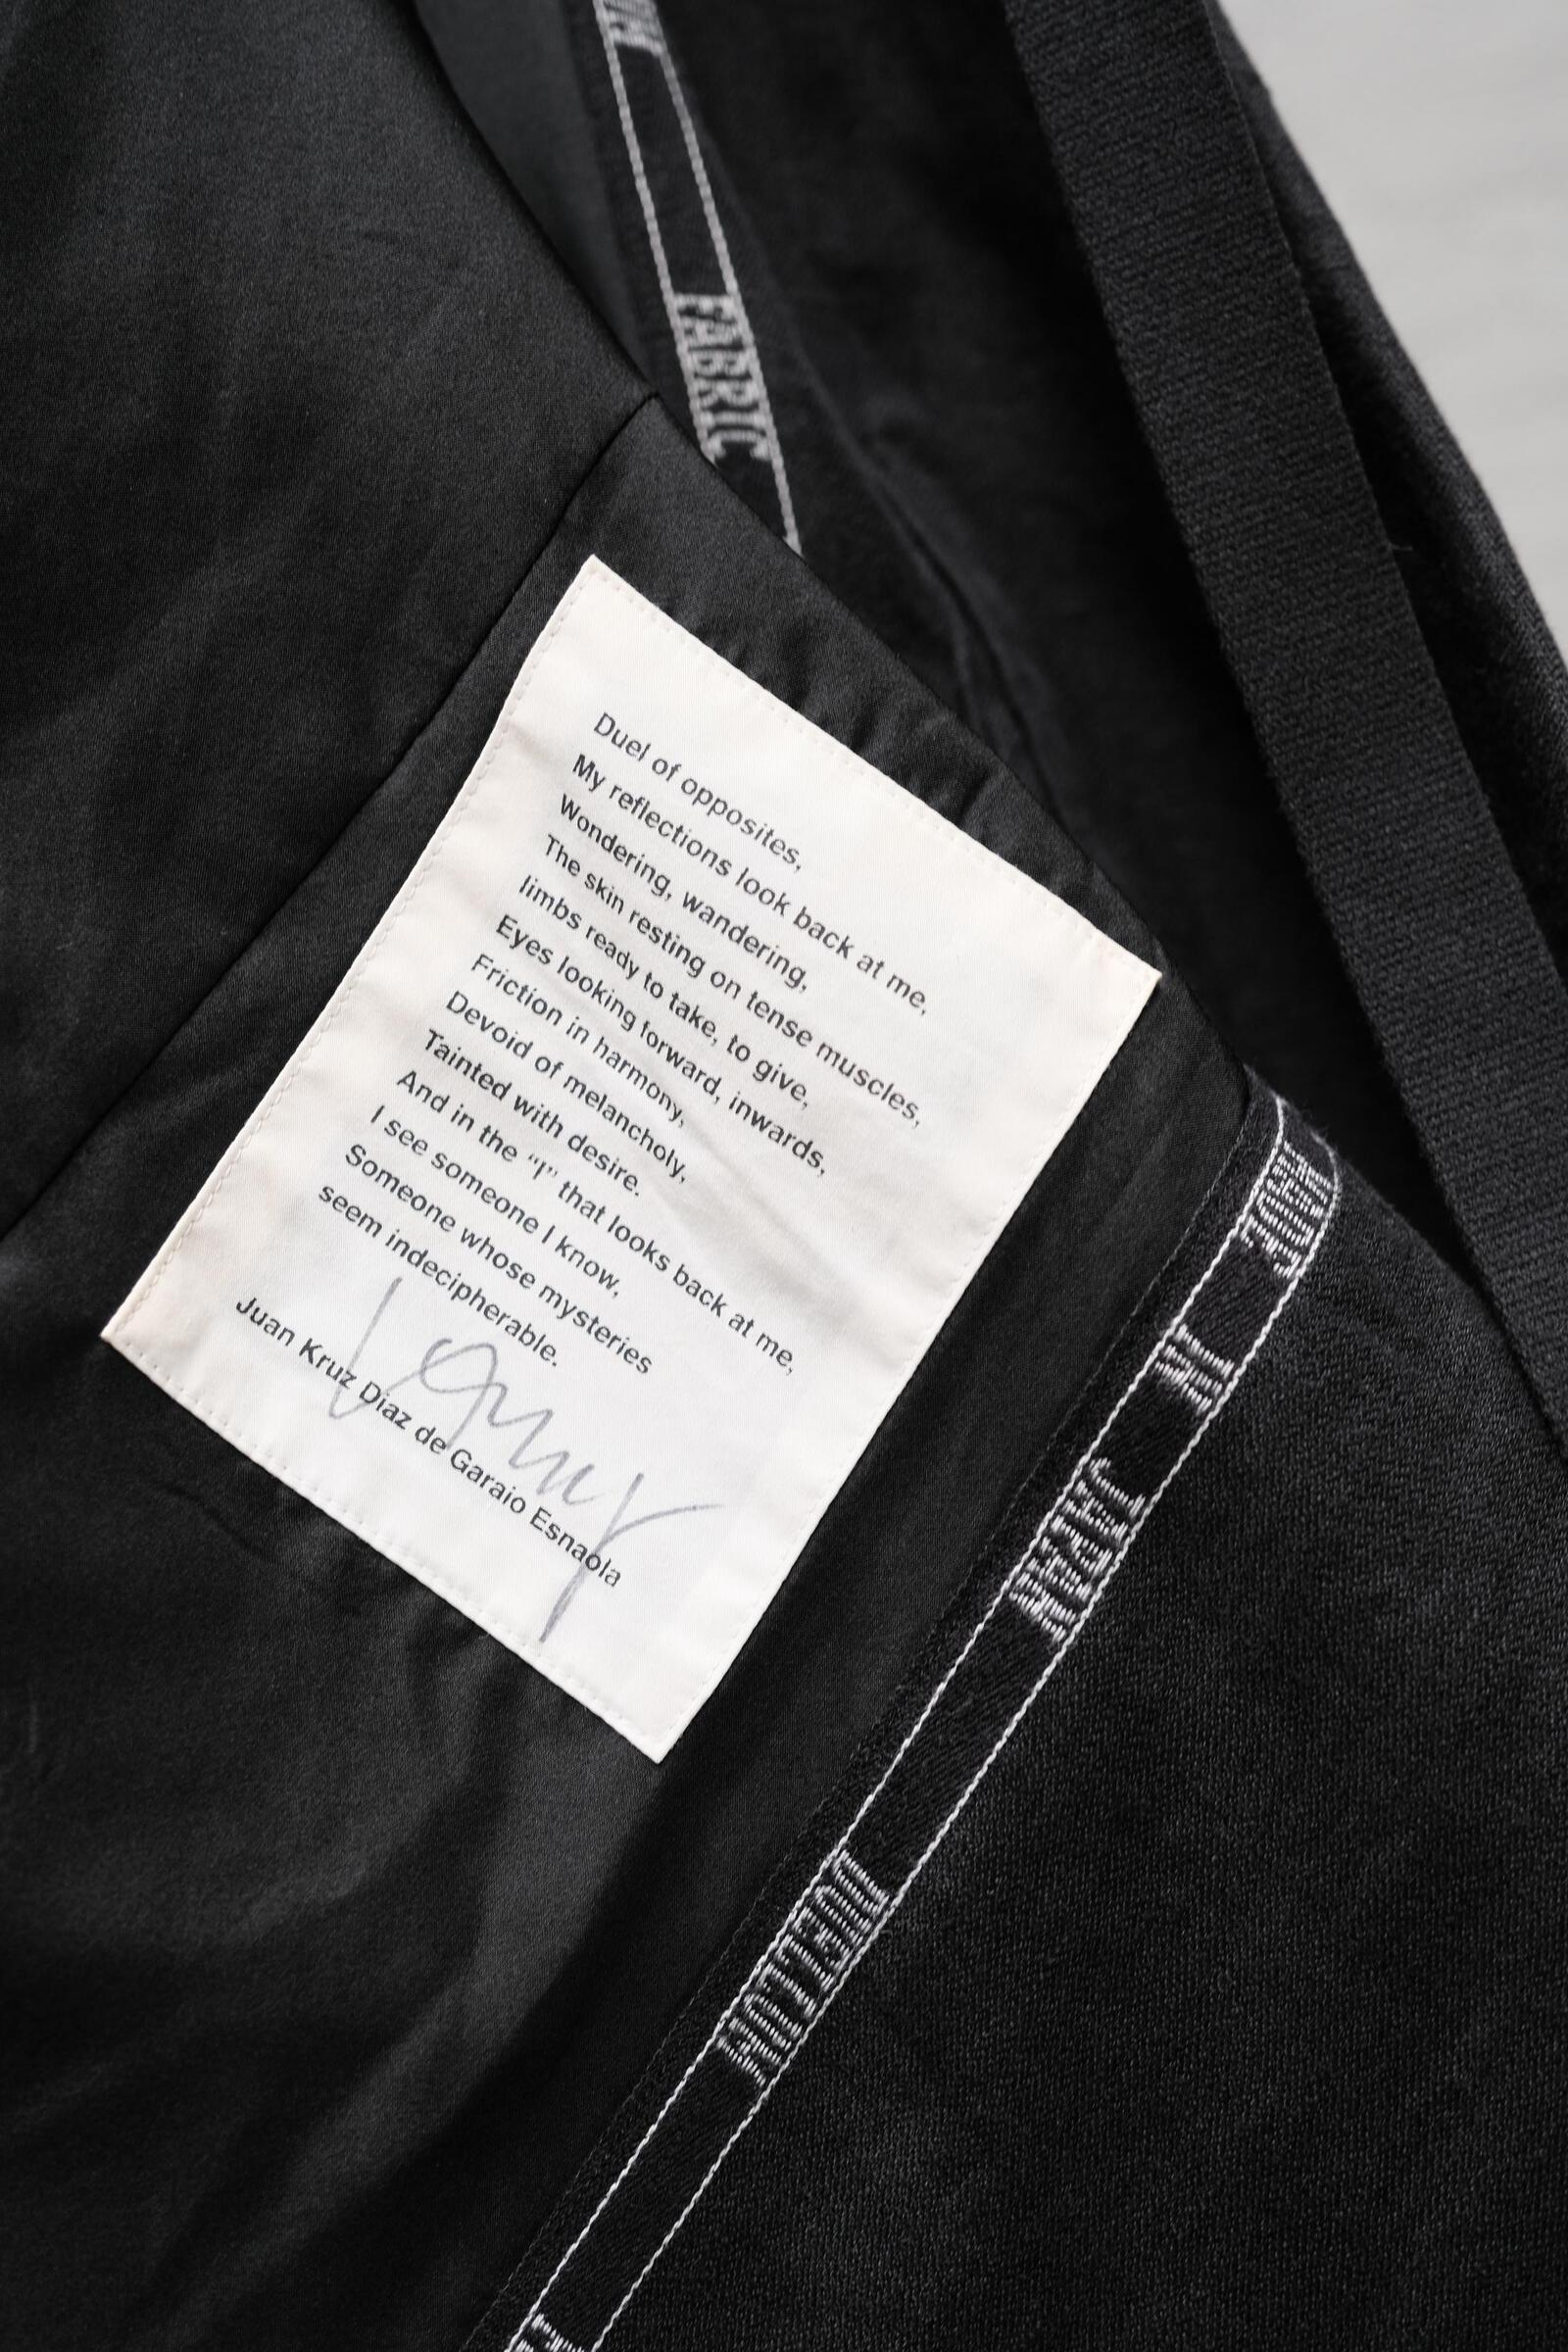 FABRIC
Duel of opposites,
My reflections look back at me,
Wondering, wandering,
The skin resting on tense muscles,
limbs ready to take, to give,
Eyes looking forward, inwards,
Friction in harmony,
Devoid of melancholy,
Tainted with desire.
And in the “I” that looks back at me,
I see someone I know,
Someone whose mysteries
seem indecipherable.
Juan Kruz Diaz de Garaio Esnaola
MADE IN JAPAN